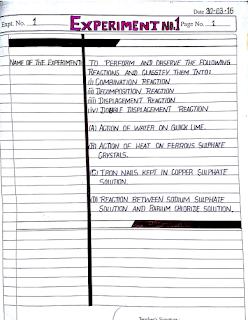 Date 30-03-16
Expt. No. 1
EXPERIMENT No.1
Page No. 1
NAME OF THE EXPERIMENT
TO PERFORM AND OBSERVE THE FOLLOWING
REACTIONS AND CLASSIFY THEM INTO:
(i) COMBINATION REACTION
(ii) DECOMPOSITION REACTION
(iii) DISPLACEMENT REACTION
(iv) DOUBLE DISPLACEMENT REACTION
(A) ACTION OF WATER ON QUICK LIME.
(B) ACTION OF HEAT ON FERROUS SULPHATE
CRYSTALS.
(C) IRON NAILS KEPT IN COPPER SULPHATE
SOLUTION.
(D) REACTION BETWEEN SODIUM SULPHATE
SOLUTION AND BARIUM CHLORIDE SOLUTION.
Teacher's Signature